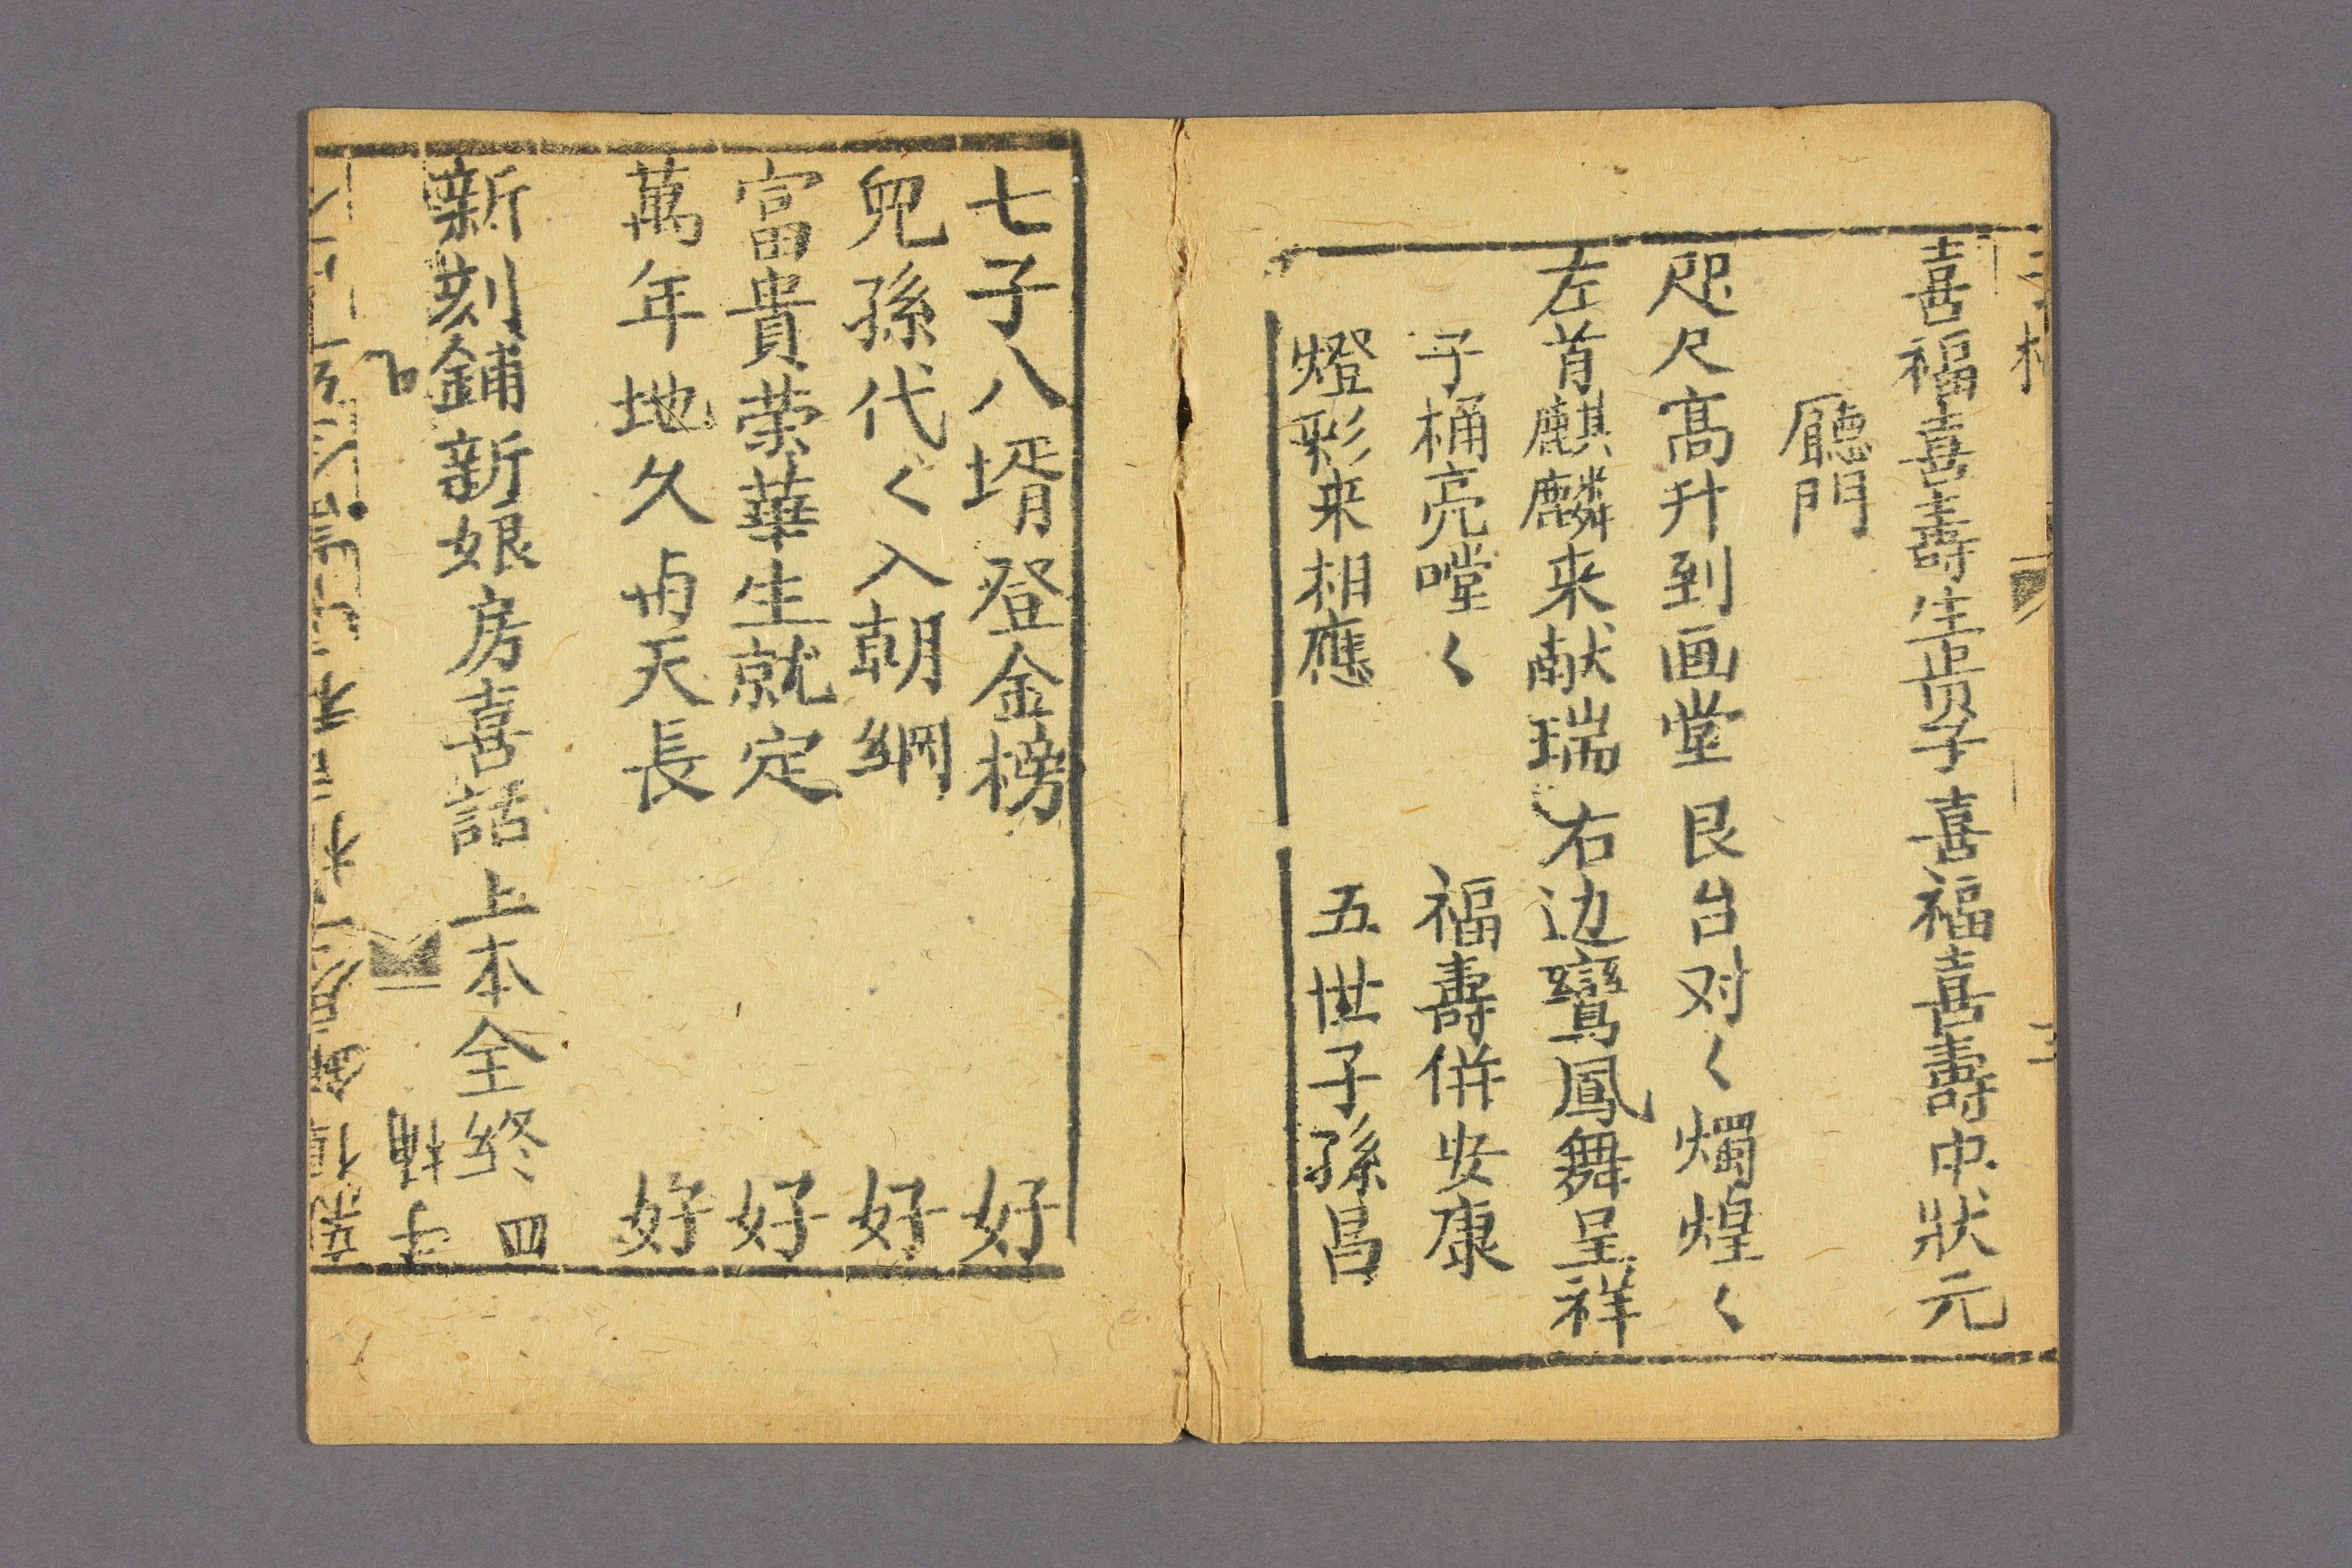 喜福喜喜壽生步子喜福喜喜壽中狀元
廳門
咫尺高升到画堂艮台对く燭煌く
左首麒麟来献瑞右边鸞鳳舞呈祥
子桶亮嘡く 福壽併安康
燈彩来相應 五世子孫昌
七子八壻登金榜 好
児孫代く入朝綱 好
富貴荣華生就定 好
萬年地久与天長 好
新刻鋪新娘房喜話上本全終 四